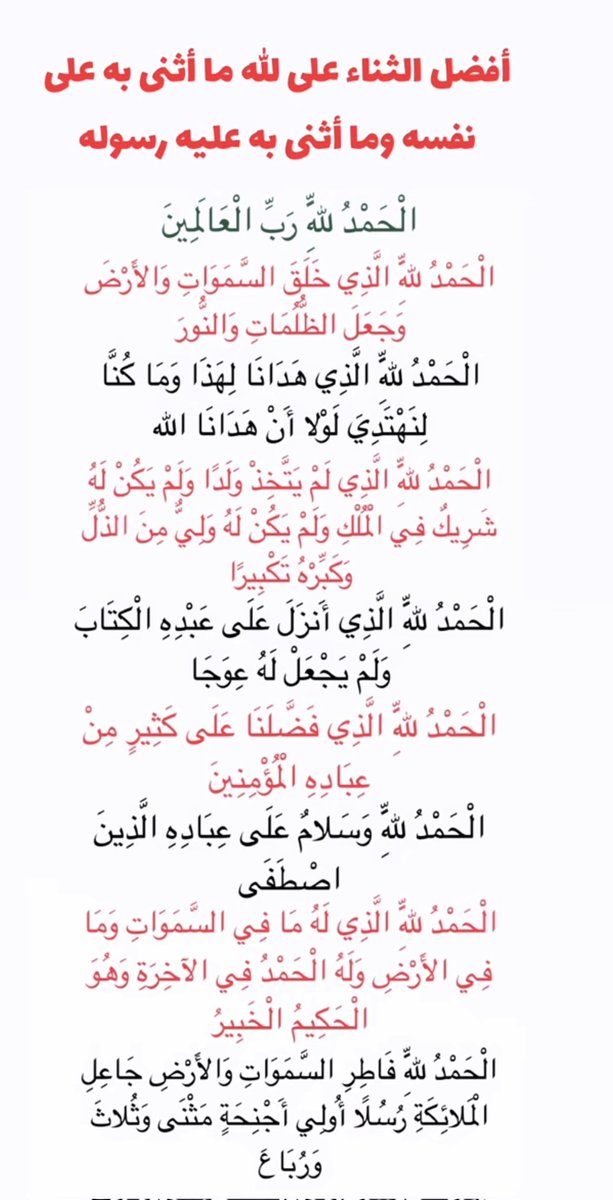 أفضل الثناء على لله ما أثنى به على
نفسه وما أثنى به عليه رسوله
الْحَمْدُ للهِّ رَبِّ الْعَالَمِينَ
الْحَمْدُ للهِّ الَّذِي خَلَقَ السَّمَوَاتِ وَالأَرْضَ
وَجَعَلَ الظُّلُمَاتِ وَالنُّورَ
الْحَمْدُ للهِّ الَّذِي هَدَانَا لِهَذَا وَمَا كُنَّا
لِنَهْتَدِيَ لَوْلا أَنْ هَدَانَا الله
الْحَمْدُ للهِّ الَّذِي لَمْ يَتَّخِذْ وَلَدًا وَلَمْ يَكُنْ لَهُ
شَرِيكٌ فِي الْمُلْكِ وَلَمْ يَكُنْ لَهُ وَلِيٌّ مِنَ الذُّلِّ
وَكَبِّرْهُ تَكْبِيرًا
الْحَمْدُ للهِّ الَّذِي أَنزَلَ عَلَى عَبْدِهِ الْكِتَابَ
وَلَمْ يَجْعَلْ لَهُ عِوَجَا
الْحَمْدُ للهِّ الَّذِي فَضَّلَنَا عَلَى كَثِيرٍ مِنْ
عِبَادِهِ الْمُؤْمِنِينَ
الْحَمْدُ للهِّ وَسَلامٌ عَلَى عِبَادِهِ الَّذِينَ
اصْطَفَى
الْحَمْدُ للهِّ الَّذِي لَهُ مَا فِي السَّمَوَاتِ وَمَا
فِي الأَرْضِ وَلَهُ الْحَمْدُ فِي الآخِرَةِ وَهُوَ
الْحَكِيمُ الْخَبِيرُ
الْحَمْدُ للهِّ فَاطِرِ السَّمَوَاتِ وَالأَرْضِ جَاعِلِ
الْمَلائِكَةِ رُسُلًا أُولِي أَجْنِحَةٍ مَثْنَى وَثُلاثَ
وَرُبَاعَ